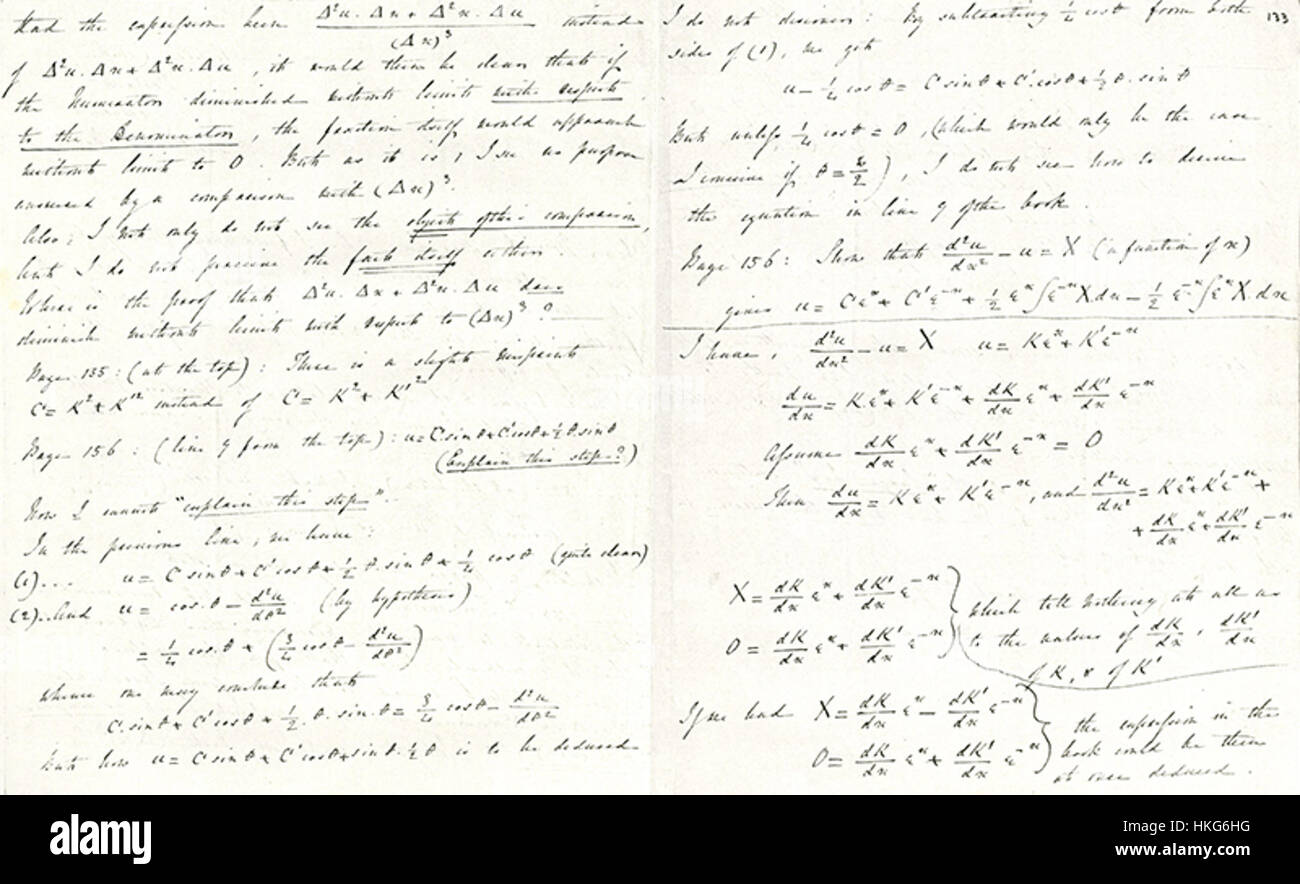 Had the expression been Δ²u.Δx + Δ²x.Δu / (Δx)³ instead
of Δ²u.Δx + Δ²x.Δu, it would then be clear that if
the Numerator diminished without limit with respect
to the Denominator, the fraction itself would approach
without limit to 0. But as it is, I see no purpose
answered by a comparison with (Δx)³.
Also; I not only do not see the object of this comparison,
but I do not perceive the fact itself either.
Where is the proof that Δ²u.Δx + Δ²x.Δu does
diminish without limit with respect to (Δx)³?
Page 135: (at the top): There is a slight misprint
C = K² + K'² instead of C = K² + K'²
Page 156: (line 9 from the top): u = C.sinθ + C'cosθ + ½θ.sinθ
(Explain this step?)
Now I cannot "explain this step".
In the previous line, we have:
(1)... u = C sinθ + C' cosθ + ½ θ.sinθ + ¼ cosθ (quite clear)
(2)..And u = cos.θ - d²u/dθ² (by hypothesis)
= ¼ cos.θ + (¾ cosθ - d²u/dθ²)
whence one may conclude that
C.sinθ + C'cosθ + ½.θ.sin.θ = ¾ cosθ - d²u/dθ²
But how u = C sinθ + C' cosθ + sinθ.½θ is to be deduced
133
I do not discover: By subtracting ¼ cosθ from both
sides of (1), we get
u - ¼ cosθ = C sinθ + C'.cosθ + ½θ.sinθ
But unless ¼ cosθ = 0, (which would only be the case
I conceive if θ = π/2), I do not see how to derive
the equation in line 9 of the book.
Page 156: Show that d²u/dx² - u = X (a function of x)
gives u = Cεˣ + C'ε⁻ˣ + ½ εˣ∫ε⁻ˣX.dx - ½ ε⁻ˣ∫εˣX.dx
I have, d²u/dx² - u = X u = Kεˣ + K'ε⁻ˣ
du/dx = Kεˣ + K'ε⁻ˣ + dK/dx εˣ + dK'/dx ε⁻ˣ
Assume dK/dx εˣ + dK'/dx ε⁻ˣ = 0
Then du/dx = Kεˣ + K'ε⁻ˣ, and d²u/dx² = Kεˣ + K'ε⁻ˣ +
+ dK/dx εˣ + dK'/dx ε⁻ˣ
X = dK/dx εˣ + dK'/dx ε⁻ˣ
0 = dK/dx εˣ + dK'/dx ε⁻ˣ
which tell nothing at all as
to the values of dK/dx, dK'/dx
of K, & of K'
If we had X = dK/dx εˣ - dK'/dx ε⁻ˣ
0 = dK/dx εˣ + dK'/dx ε⁻ˣ
the expression in the
book could be then
at once deduced.
alamy stock photo
HKG6HG
www.alamy.com